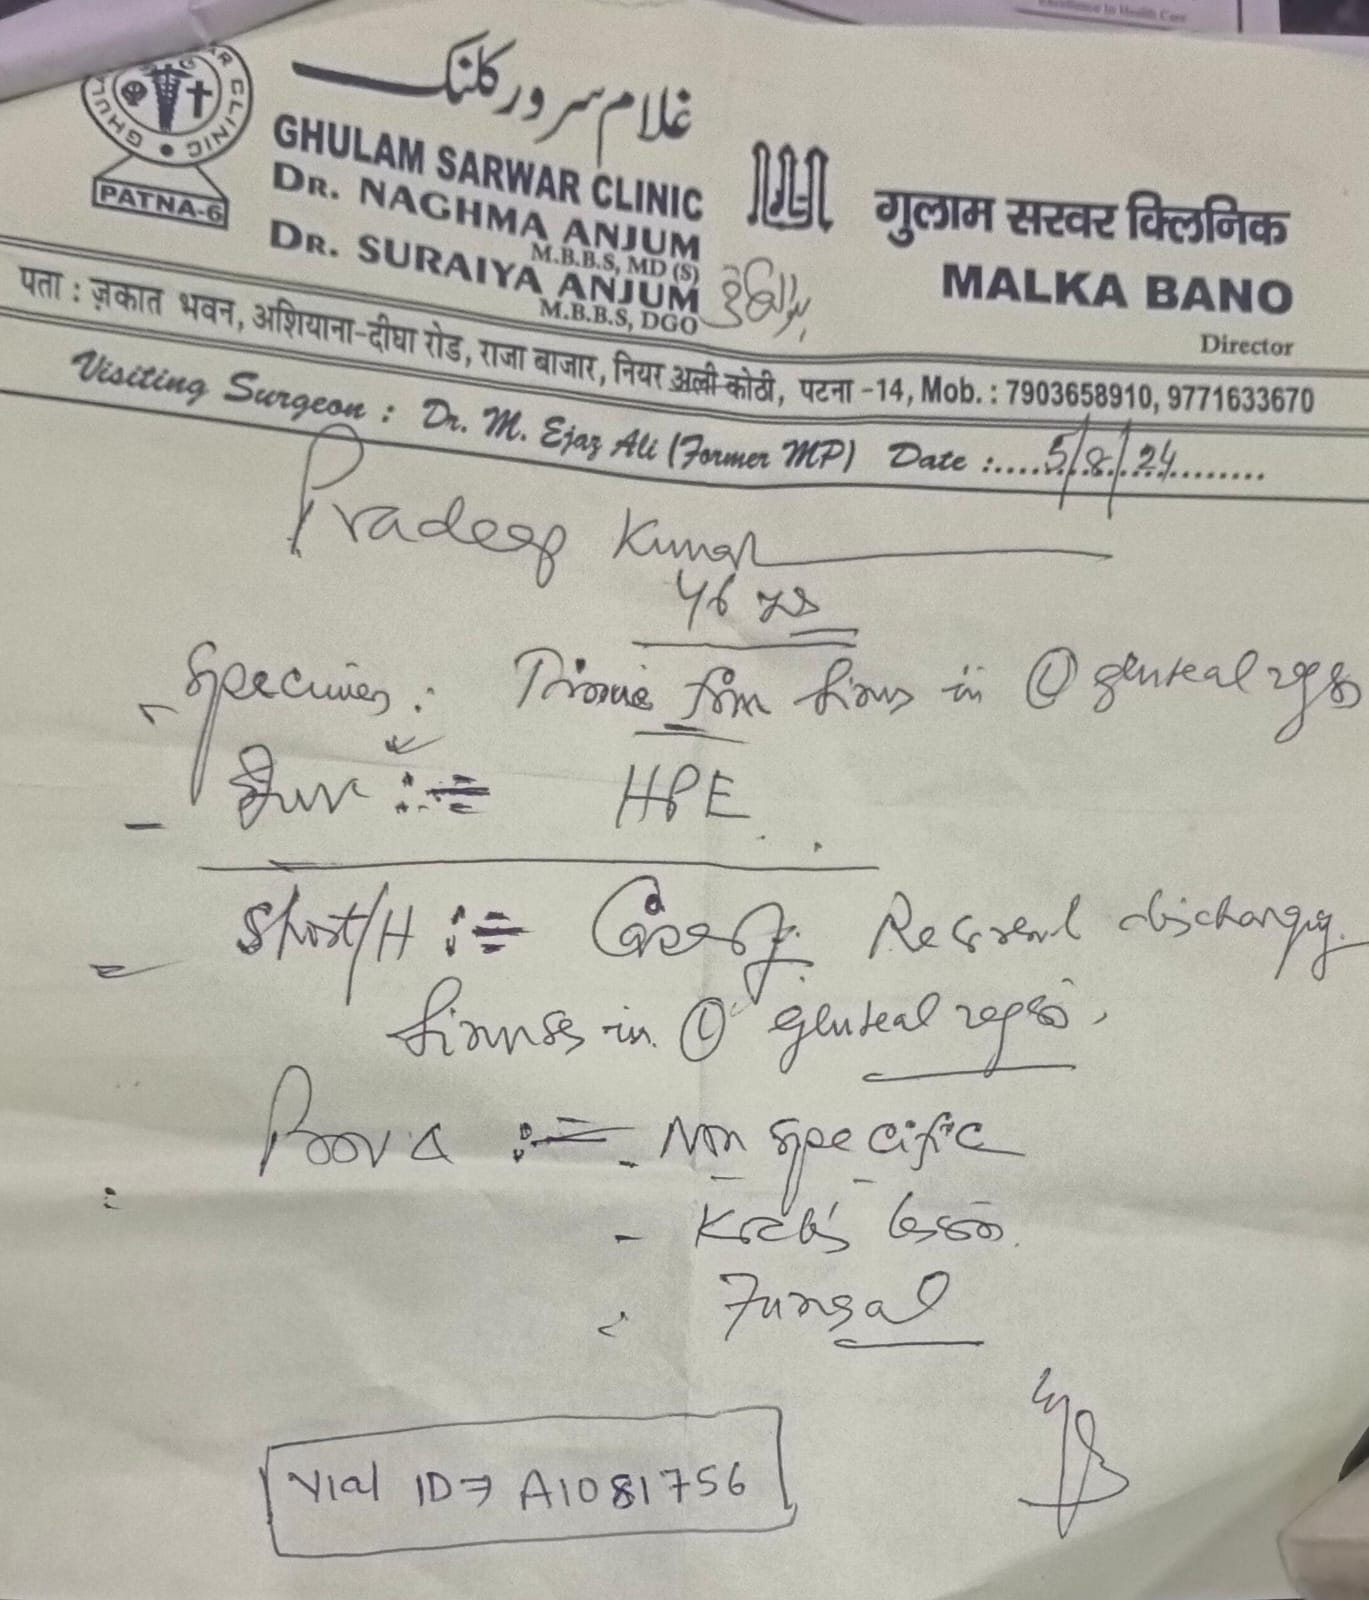 Excellence In Health Care
GHULAM SARWAR CLINIC
PATNA-6
غلام سرور کلنک
GHULAM SARWAR CLINIC
DR. NAGHMA ANJUM
M.B.B.S, MD (S)
DR. SURAIYA ANJUM
M.B.B.S, DGO
गुलाम सरवर क्लिनिक
MALKA BANO
Director
पता : ज़कात भवन, अशियाना-दीघा रोड, राजा बाजार, नियर अली कोठी, पटना -14, Mob. : 7903658910, 9771633670
Visiting Surgeon : Dr. M. Ejaz Ali (Former MP) Date :.....5/8/24........
Pradeep Kumar
46 yrs
Specimen : Tissue from Sinus in (L) gluteal region
HPE
Short/H := Recurrent discharging
Sinuses in (L) gluteal region,
Prov d := - Non specific
- Koch's
- Fungal
Vial ID → A1081756